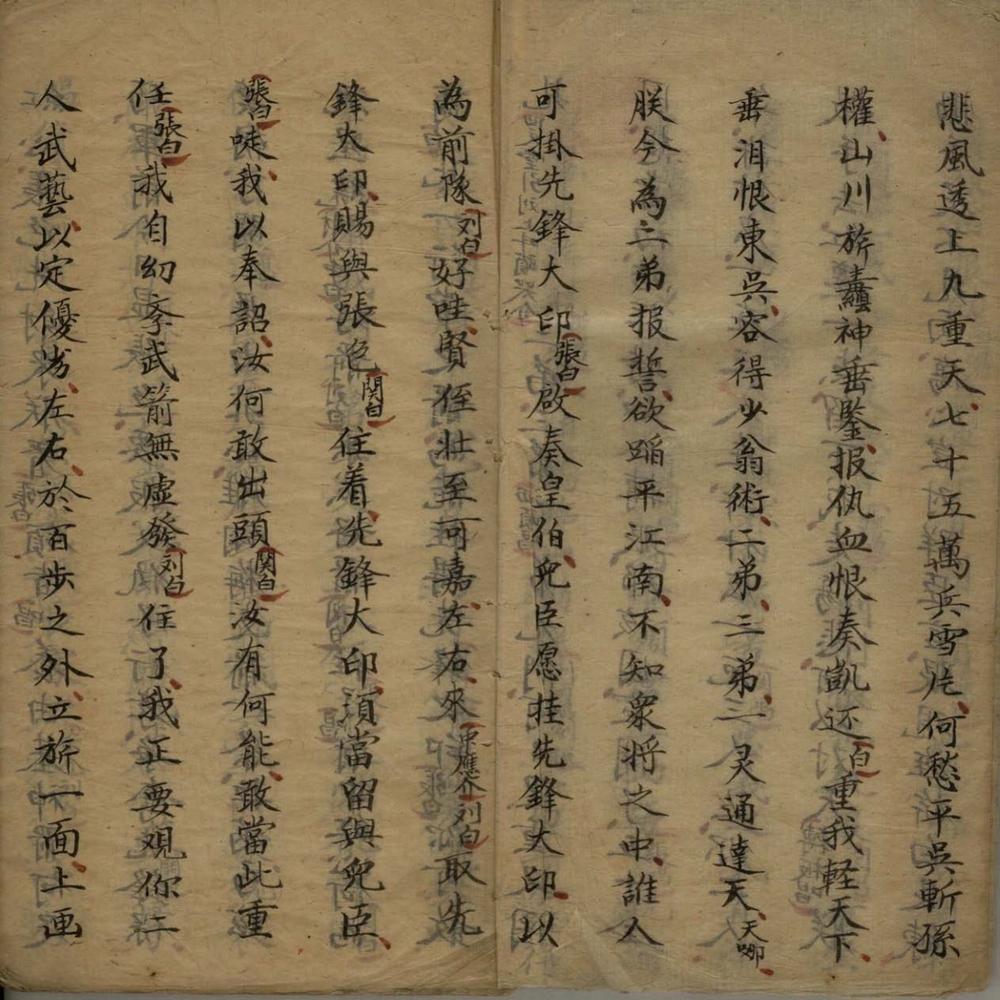 悲風透上九重天七十五萬兵雪片何愁平吳斬孫
權山川旂纛神垂鑒報仇血恨奏凱还白重我軽天下
垂泪恨東吳容得少翁術二弟三弟二灵通達天天哪
朕今為二弟报誓欲蹈平江南不知衆將之中誰人
可掛先鋒大印張白啟奏皇伯児臣愿挂先鋒大印以
為前隊刘白好哇賢侄壯至可嘉左右來応介刘白取先
鋒大印賜與張苞関白住着先鋒大印須當留與児臣
張白唗我以奉詔汝何敢出頭関白汝有何能敢當此重
任張白我自幻孝武箭無虛發刘白住了我正要观你二
人武藝以定優劣左右於百歩之外立旂一面上画